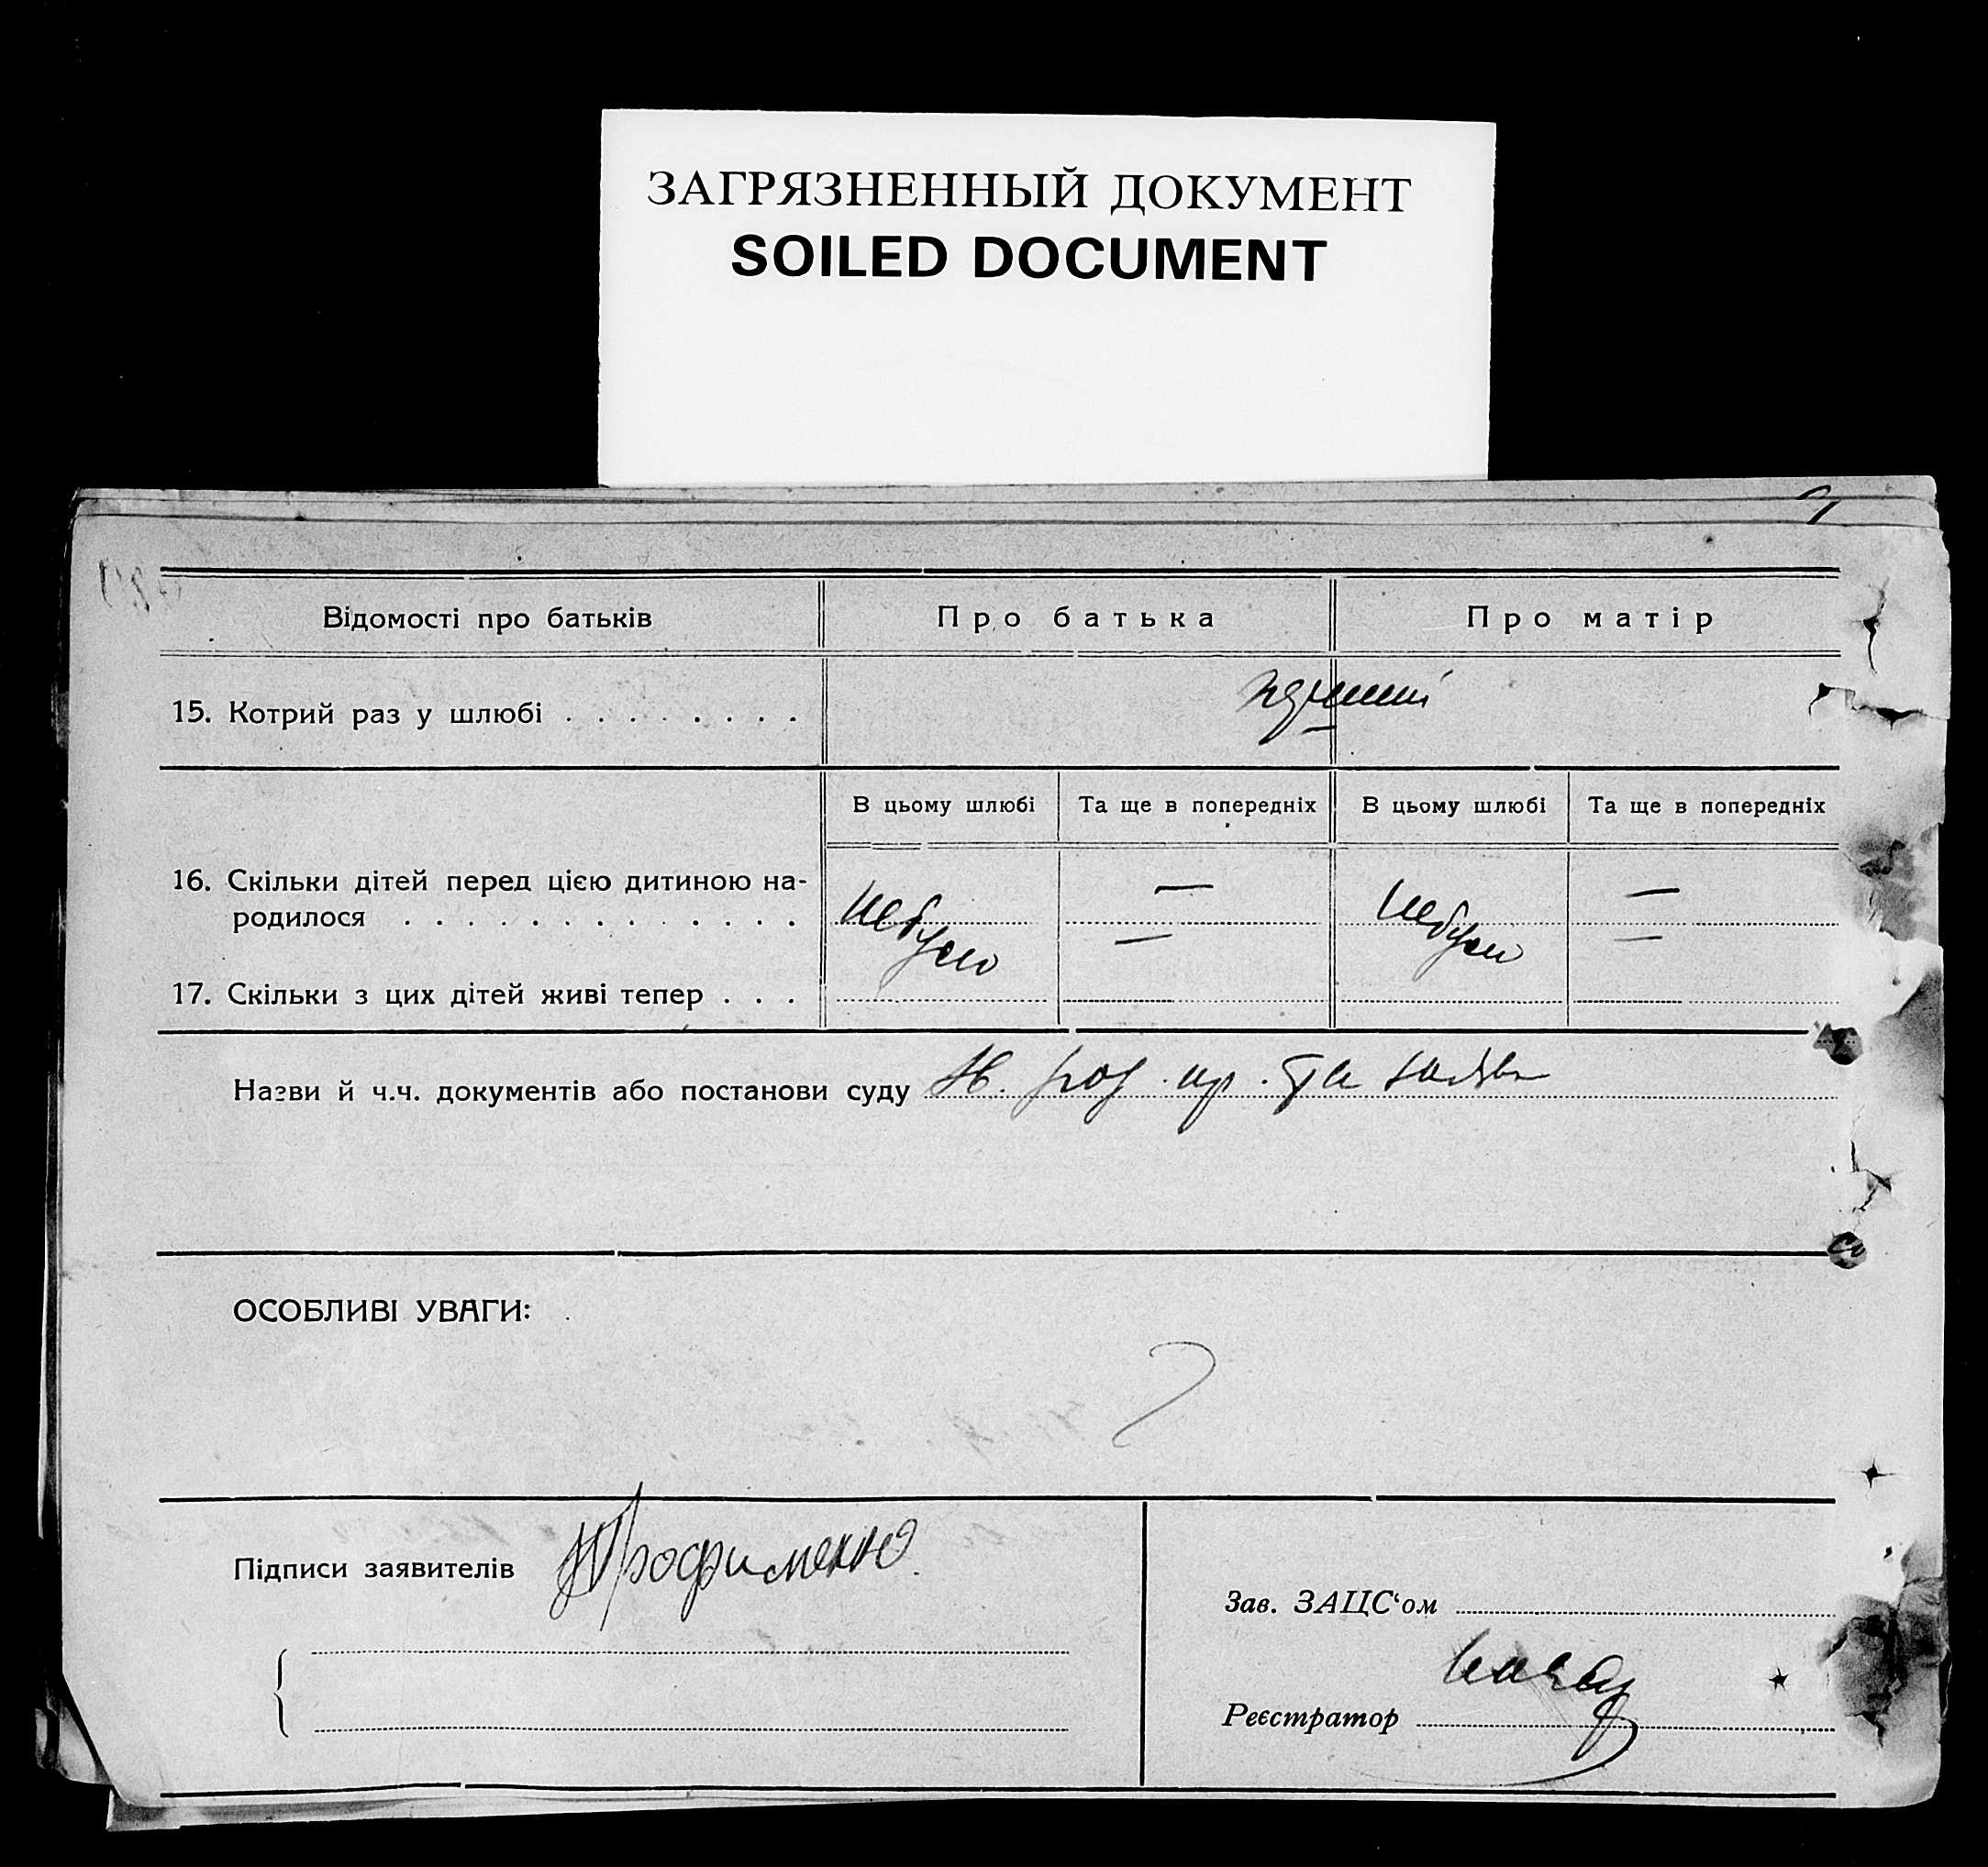 ЗАГРЯЗНЕННЫЙ ДОКУМЕНТ
SOILED DOCUMENT
Відомості про батьків Про батька Про матір
15. Котрий раз у шлюбі . . . . . . . .
В цьому шлюбі Та ще в попередніх В цьому шлюбі Та ще в попередніх
16. Скільки дітей перед цією дитиною на-
родилося . . . . . . . . . . . . . небуло — небуло —
— —
17. Скільки з цих дітей живі тепер . . .
Назви й ч.ч. документів або постанови суду та
ОСОБЛИВІ УВАГИ:
Підписи заявителів Трофименко
Зав. ЗАЦС‘ом
Реєстратор